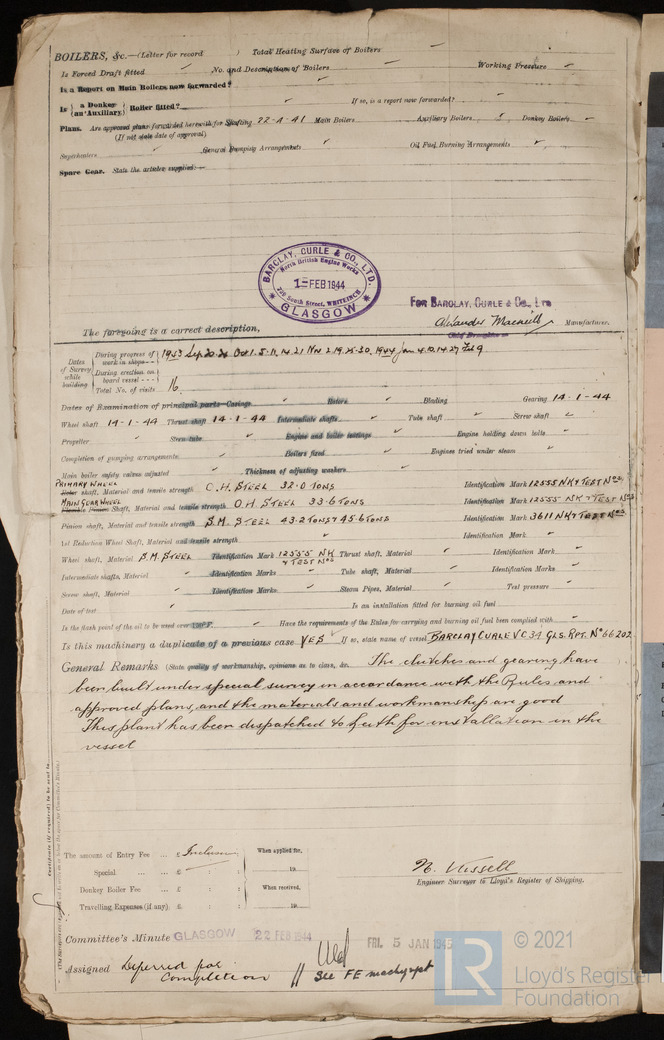 BOILERS, &c.—(Letter for record ) Total Heating Surface of Boilers
Is Forced Draft fitted No. and Description of Boilers Working Pressure
Is a Report on Main Boilers now forwarded?
Is { a Donkey / an Auxiliary } Boiler fitted? If so, is a report now forwarded?
Plans. Are approved plans forwarded herewith for Shafting 22-4-41 Main Boilers Auxiliary Boilers Donkey Boilers
(If not state date of approval)
Superheaters General Pumping Arrangements Oil Fuel Burning Arrangements
Spare Gear. State the articles supplied:—
BARCLAY, CURLE & CO., LTD.
North British Engine Works
1- FEB 1944
South Street, WHITEINCH
GLASGOW
FOR BARCLAY, CURLE & Co., LTD
Alexander Macneill Manufacturer.
The foregoing is a correct description,
Dates of Survey while building
During progress of work in shops -- 1943 Sep. Oct 1. 5. 11. 14. 21 Nov 2. 19. 1944 Jan 4. 10. 14. 27 Feb 9
During erection on board vessel ---
Total No. of visits 16.
Dates of Examination of principal parts—Casings Rotors Blading Gearing 14-1-44
Wheel shaft 14-1-44 Thrust shaft 14-1-44 Intermediate shafts Tube shaft Screw shaft
Propeller Stern tube Engine and boiler seatings Engine holding down bolts
Completion of pumping arrangements Boilers fixed Engines tried under steam
Main boiler safety valves adjusted Thickness of adjusting washers
PRIMARY WHEEL
Rotor shaft, Material and tensile strength O.H. STEEL 32.0 TONS Identification Mark 12555 NK & TEST Nos
MAIN GEAR WHEEL
Shaft, Material and tensile strength O.H. STEEL 33.6 TONS Identification Mark 12555 NK & TEST Nos
Pinion shaft, Material and tensile strength S.M. STEEL 43.2 TONS & 45.6 TONS Identification Mark 3611 NK & TEST Nos
1st Reduction Wheel Shaft, Material and tensile strength Identification Mark
Wheel shaft, Material S.M. STEEL Identification Mark 12555 NK & TEST Nos Thrust shaft, Material Identification Mark
Intermediate shafts, Material Identification Marks Tube shaft, Material Identification Marks
Screw shaft, Material Identification Marks Steam Pipes, Material Test pressure
Date of test Is an installation fitted for burning oil fuel
Is the flash point of the oil to be used over 150°F. Have the requirements of the Rules for carrying and burning oil fuel been complied with
Is this machinery a duplicate of a previous case YES If so, state name of vessel BARCLAY CURLE VC 34 GLS. RPT. No 66202
General Remarks (State quality of workmanship, opinions as to class, &c. The clutches and gearing have
been built under special survey in accordance with the Rules and
approved plans, and the materials and workmanship are good
This plant has been despatched to Leith for installation in the
vessel
The amount of Entry Fee ... £ When applied for,
Special ... £ 19
Donkey Boiler Fee ... £ : : When received,
Travelling Expenses (if any) £ : : 19
Engineer Surveyor to Lloyd's Register of Shipping.
Committee's Minute GLASGOW 22 FEB 1944
FRI. 5 JAN 1945
Assigned Deferred for Completion
See FE machy rpt
LR
© 2021
Lloyd's Register
Foundation